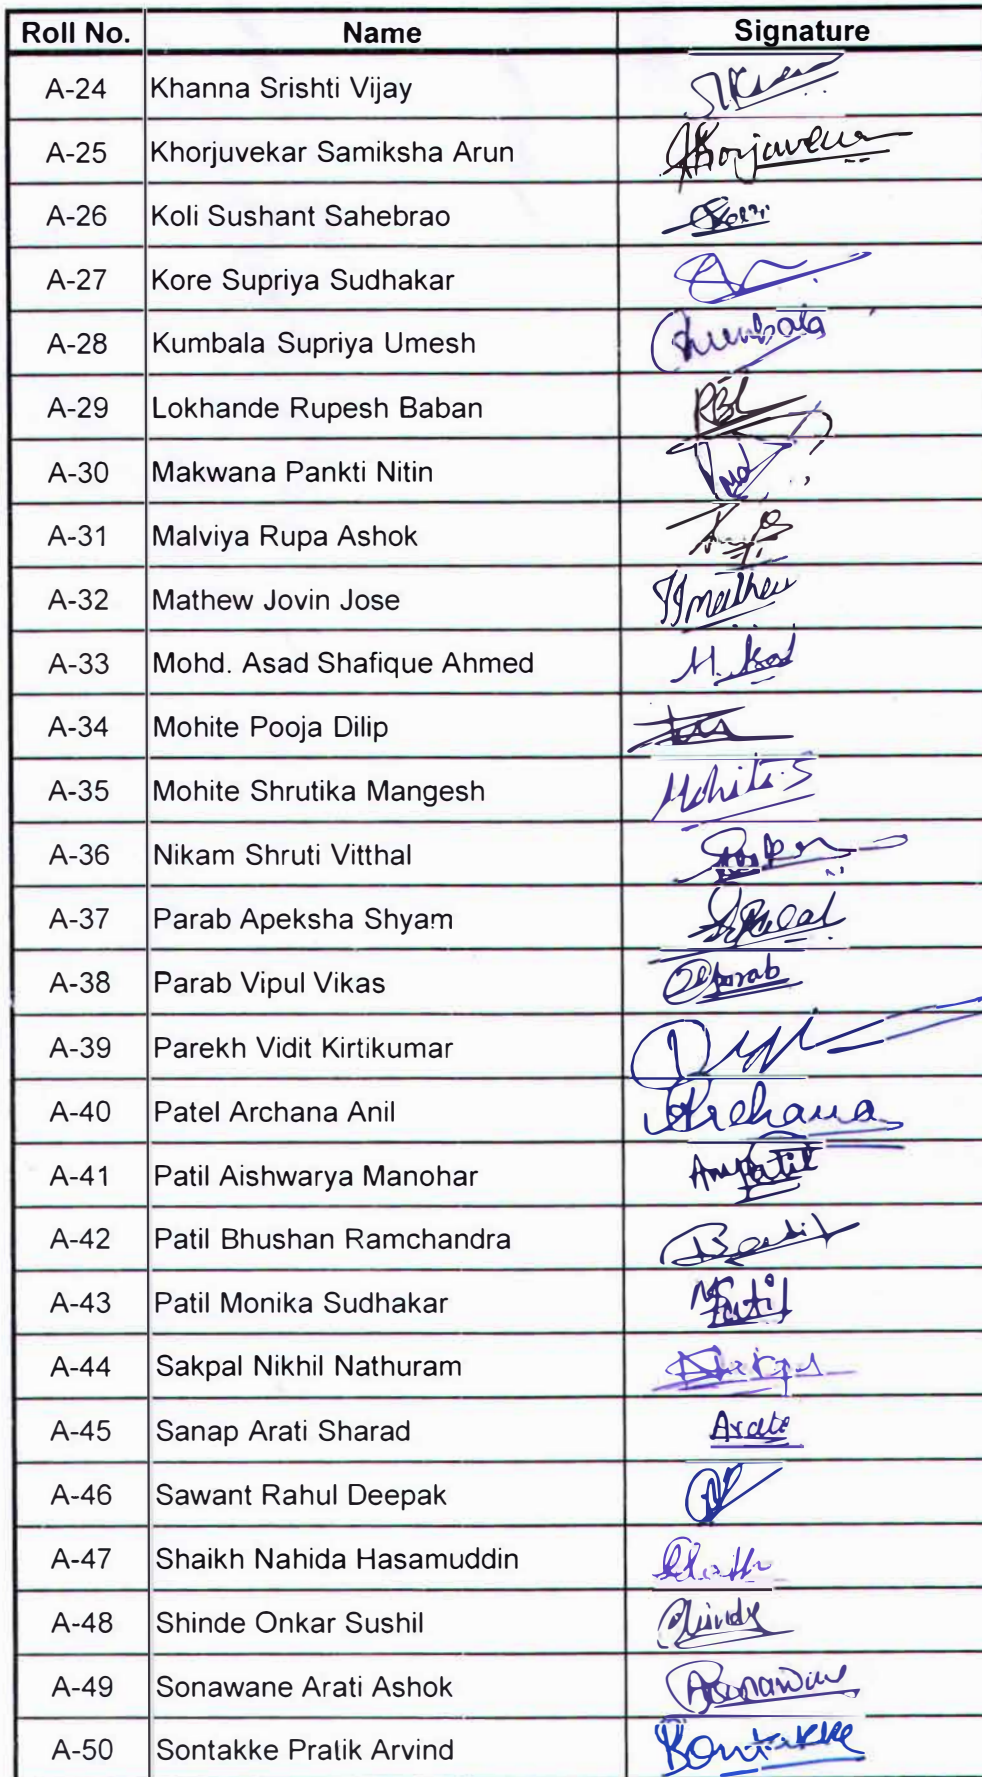 Roll No. Name Signature
A-24 Khanna Srishti Vijay
A-25 Khorjuvekar Samiksha Arun
A-26 Koli Sushant Sahebrao
A-27 Kore Supriya Sudhakar
A-28 Kumbala Supriya Umesh
A-29 Lokhande Rupesh Baban RBL
A-30 Makwana Pankti Nitin
A-31 Malviya Rupa Ashok
A-32 Mathew Jovin Jose JJmathew
A-33 Mohd. Asad Shafique Ahmed M. Asad
A-34 Mohite Pooja Dilip
A-35 Mohite Shrutika Mangesh Mohite.S
A-36 Nikam Shruti Vitthal
A-37 Parab Apeksha Shyam
A-38 Parab Vipul Vikas
A-39 Parekh Vidit Kirtikumar
A-40 Patel Archana Anil Archana
A-41 Patil Aishwarya Manohar AmPatil
A-42 Patil Bhushan Ramchandra
A-43 Patil Monika Sudhakar MPatil
A-44 Sakpal Nikhil Nathuram
A-45 Sanap Arati Sharad Arati
A-46 Sawant Rahul Deepak
A-47 Shaikh Nahida Hasamuddin
A-48 Shinde Onkar Sushil
A-49 Sonawane Arati Ashok
A-50 Sontakke Pratik Arvind